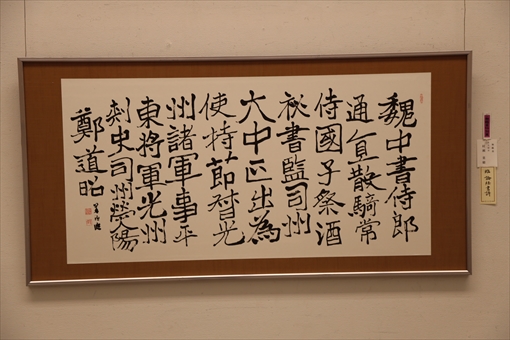 魏中書侍郎
通直散騎常
侍國子祭酒
秘書監司州
大中正出為
使持節督光
州諸軍事平
東將軍光州
刺史司州滎陽
鄭道昭